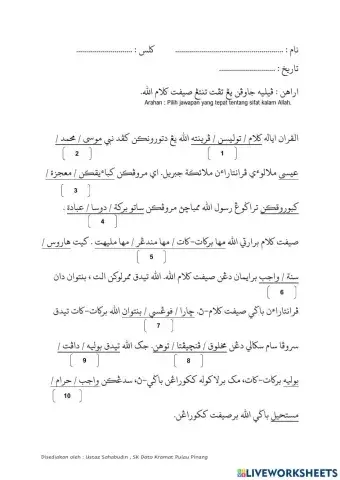 نام : ............................................ كلس : ......................
تاريخ : ......................
اراهن : ڤيليه جاوڤن يڠ تڤت تنتڠ صيفت كلام الله.
Arahan : Pilih jawapan yang tepat tentang sifat kalam Allah.
القران اياله كلام / توليسن / ڤرينته الله يڠ دتورونكن كڤد نبي موسى / محمد /
[ 2 ] [ 1 ]
عيسى ملالوءي ڤرانتاراءن ملائكة جبريل. اي مروڤكن كباءيقكن / معجزة /
[ 3 ]
كبوروقكن تراڬوڠ رسول الله ممباچڽ مروڤكن ساتو بركة / دوسا / عبادة .
[ 4 ]
صيفت كلام برارتي الله مها بركات-كات / مها مندڠر / مها مليهت . كيت هاروس /
[ 5 ]
سنة / واجب برايمان دڠن صيفت كلام الله. الله تيدق ممرلوكن الت ، بنتوان دان
[ 6 ]
ڤرانتاراءن باݢي صيفت كلام-ڽ. چارا / فوڠسي / بنتوان الله بركات-كات تيدق
[ 7 ]
سروڤا سام سكالي دڠن مخلوق / ڤنچيڤتا / توهن. جك الله تيدق بوليه / داڤت /
[ 9 ] [ 8 ]
بوليه بركات-كات، مک برلاكوله ككوراڠن باݢي-ڽ، سدڠكن واجب / حرام /
[ 10 ]
مستحيل باݢي الله برصيفت ككوراڠن.
Disediakan oleh : Ustaz Sahabudin , SK Dato Kramat Pulau Pinang
LIVEWORKSHEETS